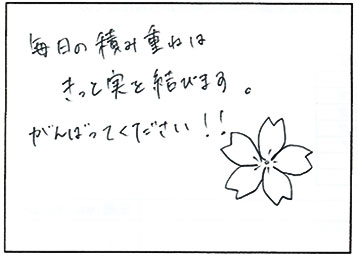 毎日の積み重ねは
きっと実を結びます。
がんばってください!!